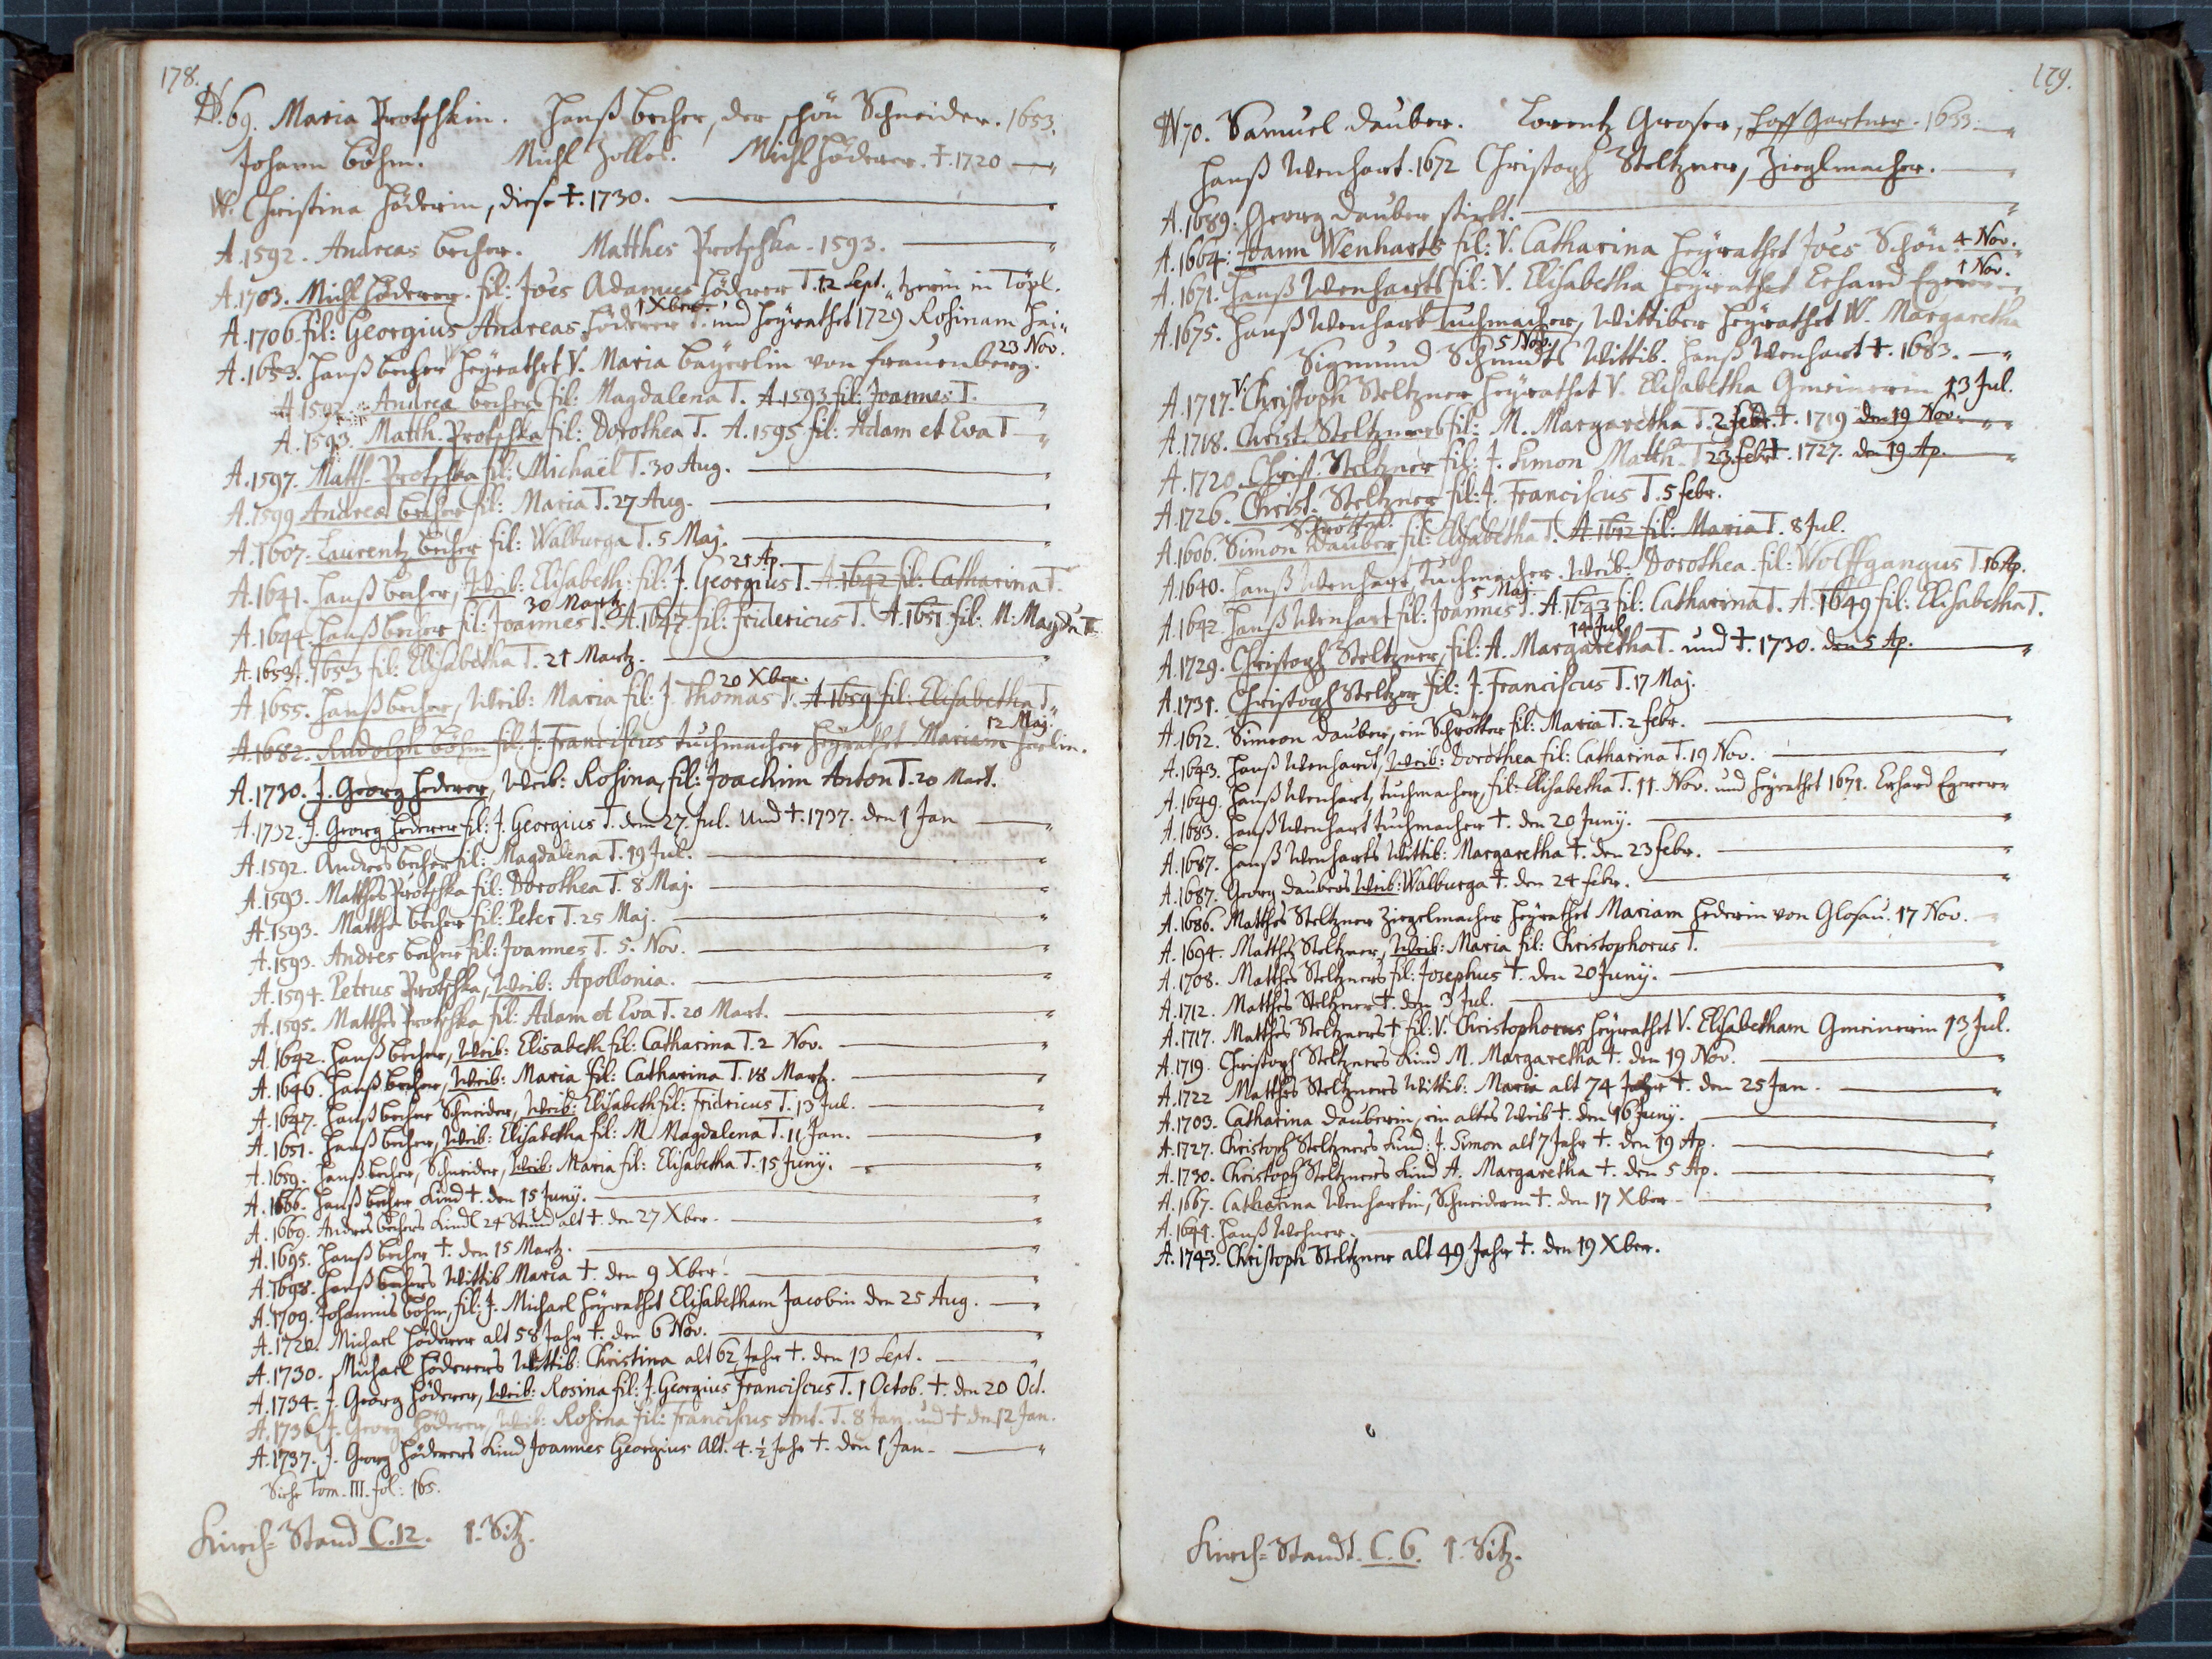 178.
N. 69. Maria Protschkin. Hanß becher, der schön Schneider. 1653.
Johann böhm. Michl Zolles. Michl Höderer. †. 1720
W. Christina Höderin, diese †. 1730.
A. 1592. Andreas becher. Matthes Protschka. 1593.
A. 1703. Michl Höderer. fil: Joes Adamus Höderer T. 12 Sept. tzerin in Töpl.
1 Xber.
A. 1706. fil: Georgius Andreas Höderer T. und heÿrathet 1729 Rosinam Hei„
23 Nov.
A. 1653. Hanß becher heÿrathet V. Maria baÿerlin von frauenberg.
A 1592. Andreæ bechers fil: Magdalena T. A. 1593 fil: Joannes T.
A. 1593. Matth. Protschka fil: Dorothea T. A. 1595 fil: Adam et Eva T
A. 1597. Matth. Protschka fil: Michaël T. 30 Aug.
A. 1599 Andreæ becher fil: Maria T. 27 Aug.
A. 1607. Laurentz becher fil: Walburga T. 5 Maj.
21 Ap.
A. 1641. Hanß becher, Weib: Elisabeth: fil: J. Georgius T. A. 1642 fil: Catharina T.
30 Martz
A. 1644. Hanß becher fil: Joannes T. A. 1647. fil: fridericus T. A. 1651 fil: M: Magd'a T.
A. 1653. 1653 fil: Elisabetha T. 21 Martz.
20 Xber.
A. 1655. Hanß becher, Weib: Maria fil: J. Thomas T. A. 1659 fil: Elisabetha T.
12 Maj.
A. 1682. Rudolph böhm fil: J. Franciscus tuchmacher heÿrathet Mariam
A. 1730. J. Georg Hederer, Weib: Rosina, fil: Joachim Anton T. 20 Mart.
A. 1732. J. Georg Hederer fil: J. Georgius T. dem 27. Jul. Und †. 1737. den 1 Jan
A. 1592. Andres becher fil: Magdalena T. 19 Jul.
A. 1593. Matthes Protschka fil: Dorothea T. 8 Maj.
A. 1593. Matthes becher fil: Peter T. 25 Maj.
A. 1593. Andres becher fil: Joannes T. 5. Nov.
A. 1594. Petrus Protschka, Weib: Apollonia.
A. 1595. Matthes Protschka fil: Adam et Eva T. 20 Mart.
A. 1642. Hanß becher, Weib: Elisabeth fil: Catharina T. 2 Nov.
A. 1646. Hanß becher, Weib: Maria fil: Catharina T. 18 Martz.
A. 1647. Hanß becher Schneider, Weib: Elisabeth fil: Fridricus T. 13 Jul.
A. 1651. Hanß becher, Weib: Elisabetha fil: M. Magdalena T. 11 Jan.
A. 1659. Hanß becher, Schneider, Weib: Maria fil: Elisabetha T. 15 Junÿ.
A. 1666. Hanß becher Kind †. den 15 Junÿ.
A. 1669. Andres bechers Kindl 24 Stund alt †. den 27 Xber.
A. 1695. Hanß becher †. den 15 Martz.
A. 1698. Hanß bechers Wittib Maria †. den 9 Xber.
A. 1709. Johannis böhm, fil: J. Michael heÿrathet Elisabetham Jacobin den 25 Aug.
A. 1720. Michael Höderer alt 58 Jahr †. den 6 Nov.
A. 1730. Michael Höderers Wittib: Christina alt 62 Jahr †. den 13 Sept.
A. 1734. J. Georg Höderer, Weib: Rosina fil: J. Georgius Franciscus T. 1 Octob. †. den 20 Oct.
A. 1736. J. Georg Höderer, Weib: Rosina fil: Franciscus Ant. T. 8 Jan. und † den 12 Jan.
A. 1737. J. Georg Höderers Kind Joannes Georgius alt. 4. ½ Jahr †. den 1 Jan.
Siehe Tom. III. fol: 165.
Kirch= Stand C. 12. 1. Sitz.
179.
N 70. Samuel dauber. Lorentz Groser, Hoff Gartner. 1633.
Hanß Wenhart. 1672 Christoph Steltzner, Zieglmacher.
A. 1689: Georg dauber stirbt.
A. 1664: Joann Wenharts fil: V. Catharina heÿrathet Joes Schön 4 Nov.
1 Nov.
A. 1671. Hanß Wenharts fil: V. Elisabetha heÿrathet Erhard Egerer
A. 1675. Hanß Wenhart Tuchmacher, Wittiber heÿrathet W. Margaretha
5 Nov.
Sigmund Schmidts Wittib. Hanß Wenhart †. 1683.
A. 1717. V. Christoph Steltzner heÿrathet V. Elisabetha Gmeinerin 13 Jul.
A. 1718. Christ. Steltzners fil: M. Margaretha T. 2 febr. †. 1719 den 19 Nov.
A. 1720. Christ. Steltzner fil: J. Simon Matth. T 23. febr †. 1727. den 19 Ap.
A. 1726. Christ. Steltzner fil: J. Franciscus T. 5 febr.
Schrötter
A. 1606. Simon Dauber fil: Elisabetha T. A. 1612 fil: Maria T. 8 Jul.
A. 1640. Hanß Wenhart, tuchmacher. Weib: Dorothea. fil: Wolffgangus T. 16 Ap.
5 Maj
A. 1642. Hanß Wenhart fil: Joannes T. A. 1643 fil: Catharina T. A. 1649 fil: Elisabetha T.
14 Jul
A. 1729. Christoph Steltzner, fil: A. Margaretha T. und †. 1730. den 5 Ap.
A. 1731. Christoph Steltzer fil: J. Franciscus T. 17 Maj.
A. 1612. Simeon dauber, ein Schrötter fil: Maria T. 2 febr.
A. 1643. Hanß Wenhardt, Weib: Dorothea fil: Catharina T. 19 Nov.
A. 1649. Hanß Wenhart, tuchmacher, fil: Elisabetha T. 11. Nov. und heÿrathet 1671. Erhard Egerer
A. 1683. Hanß Wenhart tuchmacher †. den 20 Junÿ.
A. 1687. Hanß Wenharts Wittib: Margaretha †. den 23 febr.
A. 1687. Georg daubers Weib: Walburga †. den 24 febr.
A. 1686. Matthes Steltzner Ziegelmacher heÿrathet Mariam Hederin von Glosau. 17 Nov.
A. 1694. Matthes Steltzner, Weib: Maria fil: Christophorus T.
A. 1708. Matthes Steltzners fil: Josephus †. den 20 Junÿ.
A. 1712. Matthes Steltzner †. den 3 Jul.
A. 1717. Matthes Steltzners † fil: V. Christophorus heÿrathet V. Elisabetham Gmeinerin 13 Jul.
A. 1719. Christoph Steltzners Kind M. Margaretha †. den 19 Nov.
A. 1722 Matthes Steltzners Wittib: Maria alt 74 Jahr †. den 25 Jan.
A. 1703. Catharina Dauberin, ein altes Weib †. den 16 Junÿ.
A. 1727. Christoph Steltzners Kind: J. Simon alt 7 Jahr †. den 19 Ap.
A. 1730. Christoph Steltzners Kind A. Margaretha †. den 5 Ap.
A. 1667. Catharina Wenhartin, Schneiderin †. den 17 Xber
A. 1644. Hanß Wehner.
A. 1743. Christoph Steltzner alt 49 Jahr †. den 19 Xber.
Kirch= Standt. C. 6. 1. Sitz.